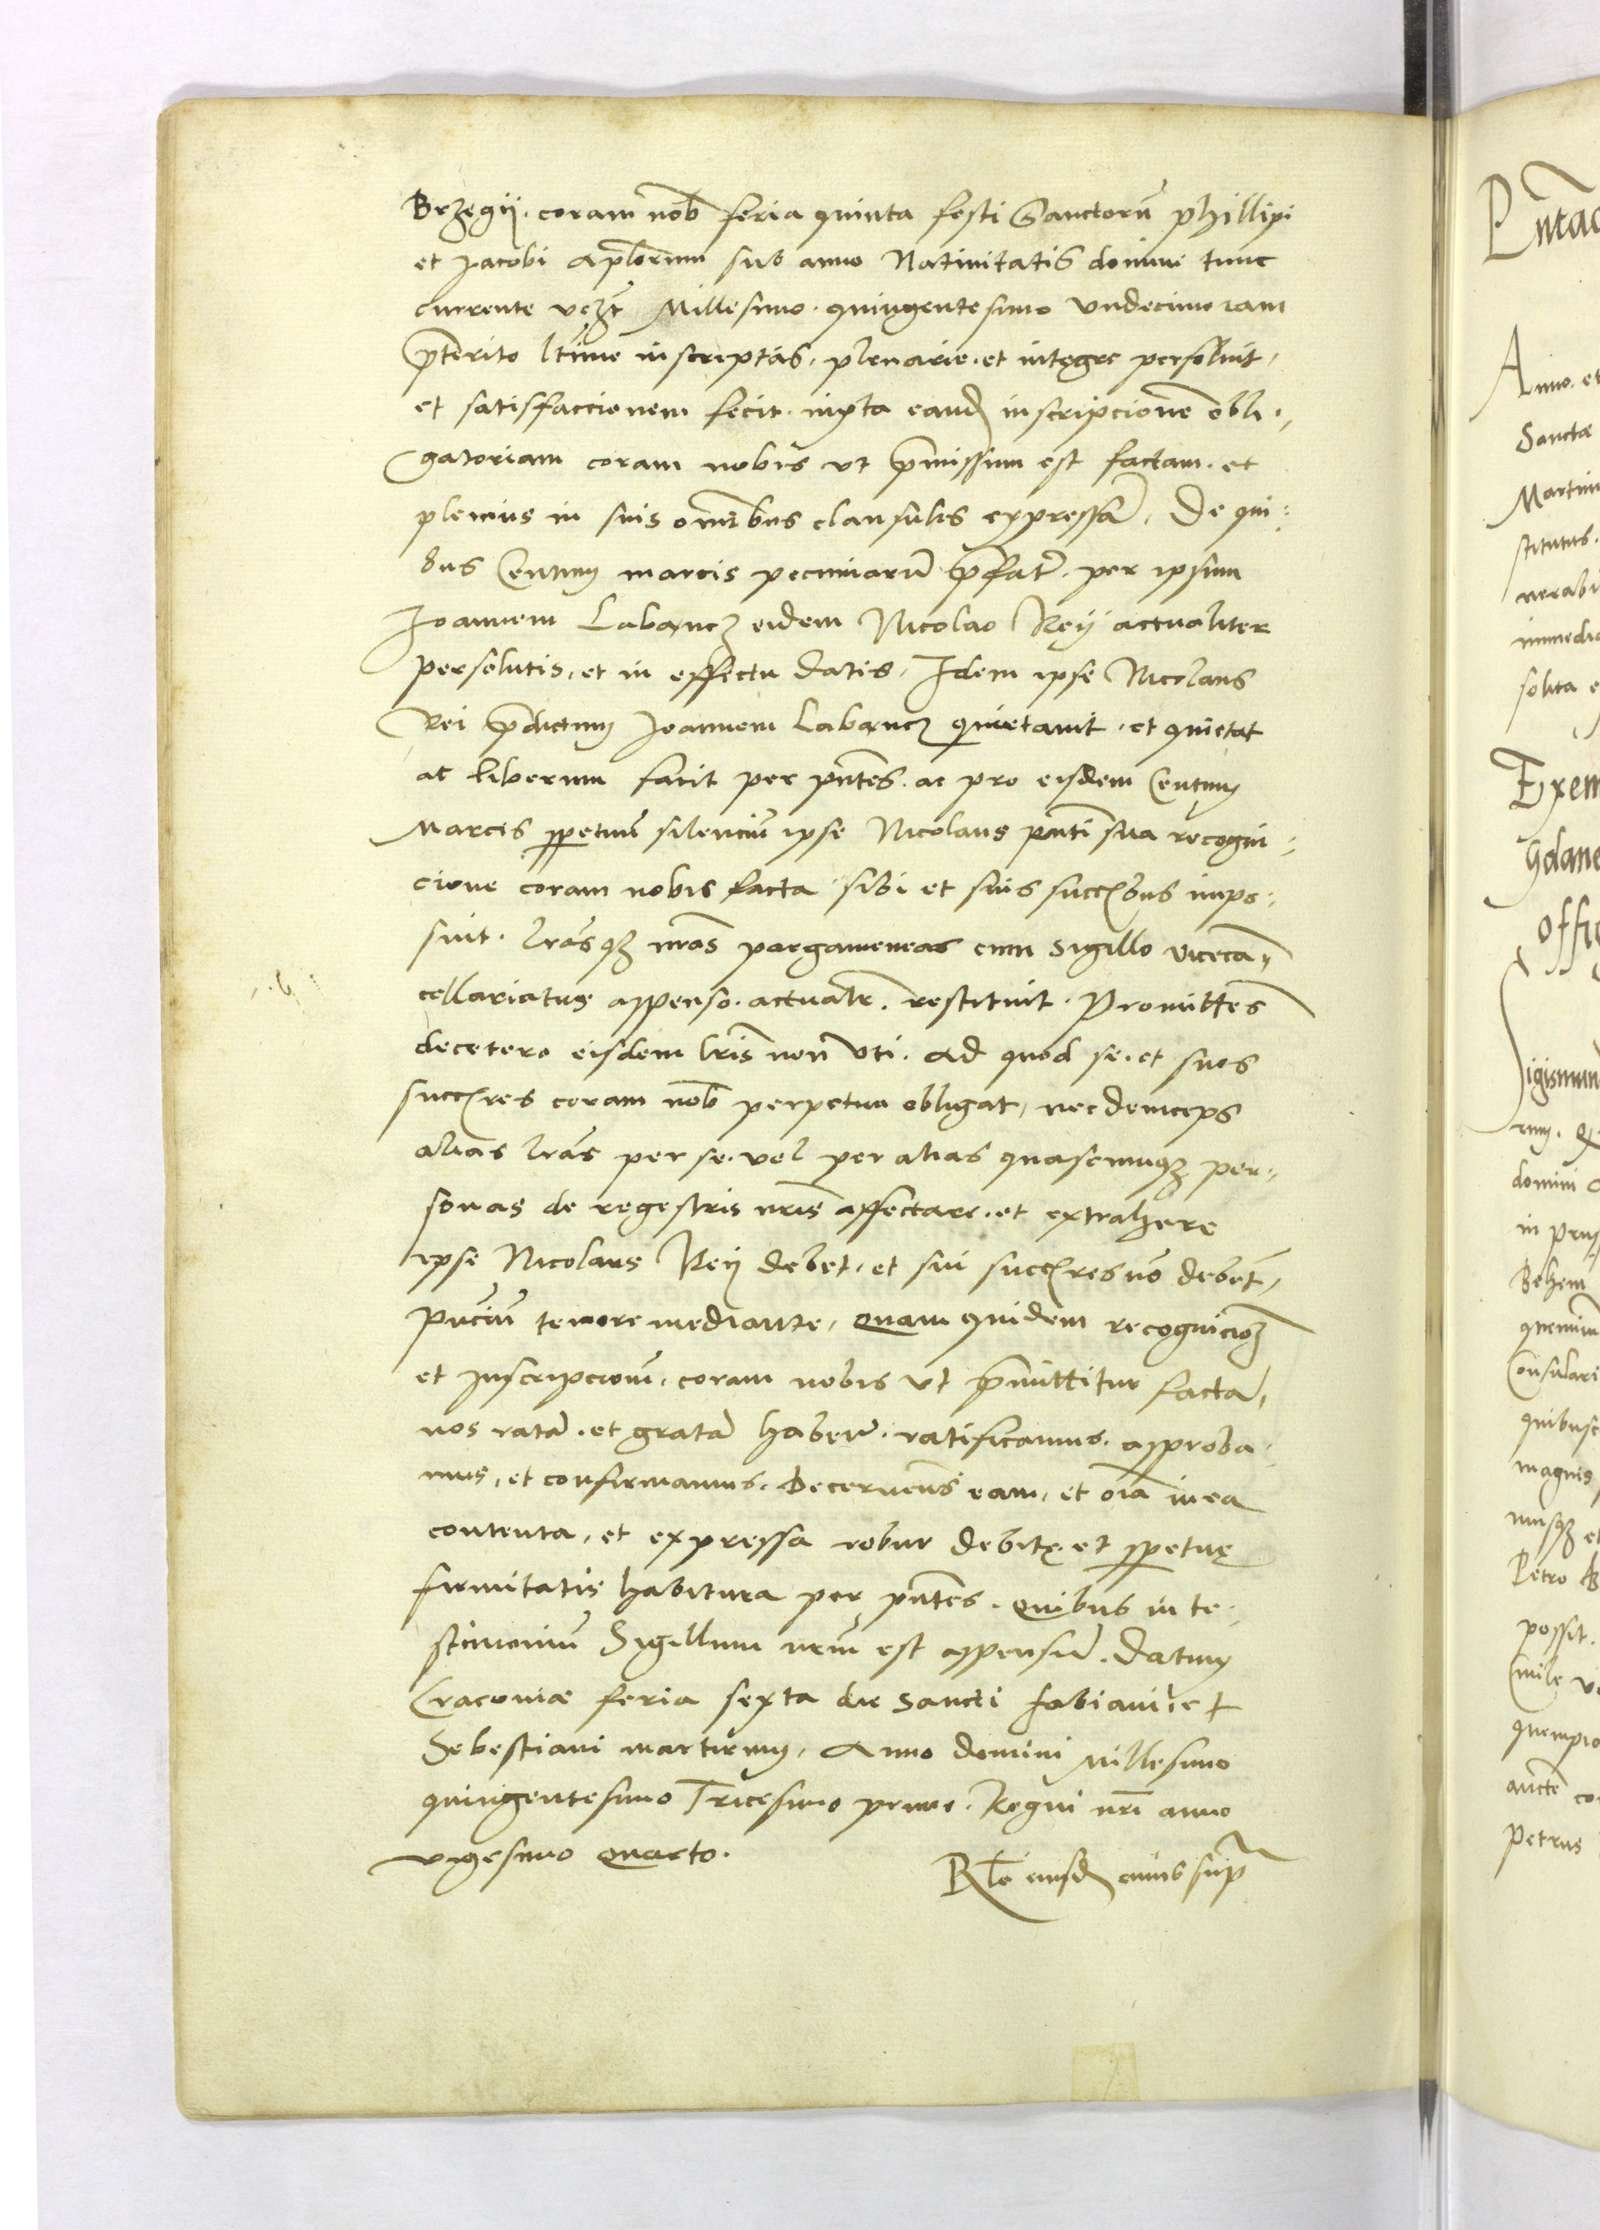 Brzegij. coram nob feria quinta festi Sanctorū Phillipi
et Jacobi aplorum sub anno Natiuitatis domini tunc
currente Millesimo quingentesimo vndecimo iam
pterito ltime inscriptas, plenarie et integre persoluit,
et satisfaccionem fecit iuxta eand inscripcionē obli-
gatoriam coram nobis vt pmissum est factam. et
plenius in suis omībus clausulis expressā. De qui-
bus Centum marcis pecuniarū pfat. per ipsum
Joannem Labancz eidem Nicolao Reij actualiter
persolutis, et in effectu datis, Idem ipse Nicolaus
Rei pdictum Joannem Labancz quietauit. et quietat
ac liberum facit per pntes. ac pro eisdem Centum
Marcis ppetuū silenciū ipse Nicolaus pnti sua recogni-
cione coram nobis facta sibi et suis succbus impo-
suit. lras qz nras pargameneas cum sigillo vicecā-
cellariatus appenso. actualr. restituit. Promittēs
decetero eisdem lris non vti. Ad quod se. et suos
succres coram nob perpetuo obligat, nec deinceps
alias lras per se. vel per alias quascunqz per-
sonas de regestris nris affectare. et extrahere
ipse Nicolaus Reij debet. et sui succres nō debēt,
pnciū tenore mediante, Quam quidem recognicioē
et Inscripcionē, coram nobis vt pmittitur factā,
nos ratā. et gratā haben. ratificamus. approba-
mus, et confirmamus. Decernens eam, et oīa in ea
contenta, et expressa robur debitę et ppetuę
firmitatis habitura per pntes. Quibus in te-
stimoniū Sigillum nrm est appensū. Datum
Cracouiæ feria sexta die Sancti Fabiani et
Sebestiani martirum, Anno domini Millesimo
quingentesimo Tricesimo primo. Regni nri anno
vigesimo quarto.
Rlo eiusd cuius sup
Anno. et
Sanctæ
Martin
stitutus.
nerabi
immedia
solita e
Exem
Gdane
offi
Sigismun
rum. Q
domini
in prus
Behem
Consulari
quibusc
magnis
Petro
possit.
quempia
Petrus